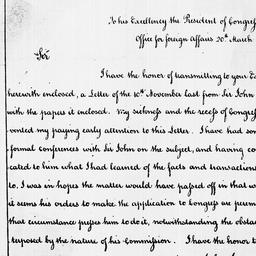 To his Excellency the President of Congress
Office for foreign Affairs 20th March
Sir
I have the honor of transmitting to your
herewith enclosed, a Letter of the 10th November last from Sir John
with the papers it enclosed. My sickness and the recess of Congress
vented my paying early attention to this Letter. I have had some
formal conferences with Sir John on the subject, and having
cated to him what I had learned of the facts and transactions
to, I was in hopes the matter would have passed off in that
it seems his orders to make the application to Congress are
that circumstance presses him to do it, notwithstanding the
terposed by the nature of his Commission. I have the honor to